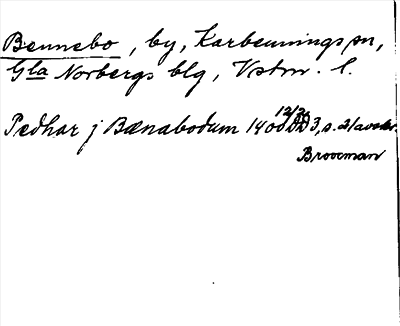 Bennebo, by, Karbennings sn,
Gla Norbergs blg, Vstm. l.
12/2
Pedhar j Bænabodum 1400 DD 3, s. 21 avskr.
Brooeman